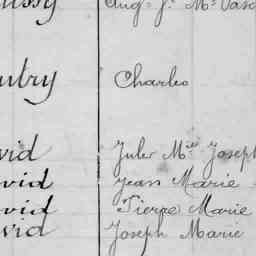 ussy Aug. J. M.
ubry Charles
vid Jules Mel Joseph
vid Jean Marie
vid Pierre Marie
vid Joseph Marie